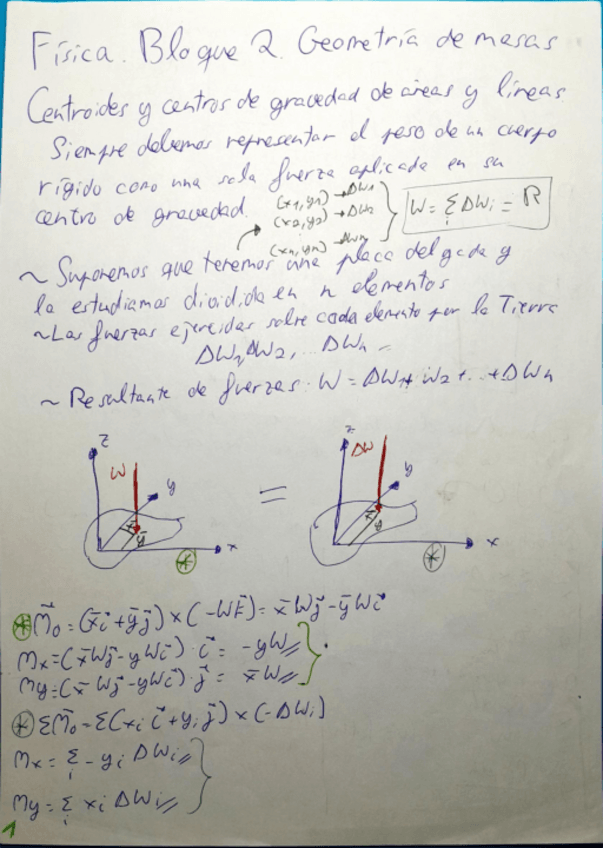 Física. Bloque 2. Geometría de masas
Centroides y centros de gravedad de áreas y líneas
Siempre debemos representar el peso de un cuerpo
rígido como una sola fuerza aplicada en su
centro de gravedad.
(x1,y1) → ΔW1
(x2,y2) → ΔW2
(xn,yn) → ΔWn
W = Σ ΔWi = R
i
~ Suponemos que tenemos una placa delgada y
la estudiamos dividida en n elementos
~ Las fuerzas ejercidas sobre cada elemento por la Tierra
ΔW1, ΔW2, ... ΔWn
~ Resultante de fuerzas: W = ΔW1 + W2 + ... + ΔWn
z W y x̄ ȳ x ⊛
=
z ΔW y x̄ x ⊛
⊛ M⃗o = (x̄i⃗ + ȳj⃗) × (-Wk⃗) = x̄Wj⃗ - ȳWi⃗
Mx = (x̄Wj⃗ - yWi⃗) · i⃗ = -yW
My = (x̄Wj⃗ - yWi⃗) · j⃗ = x̄W
⊛ ΣM⃗o = Σ(xi i⃗ + yi j⃗) × (-ΔWi)
Mx = Σ - yi ΔWi
i
My = Σ xi ΔWi
i
1